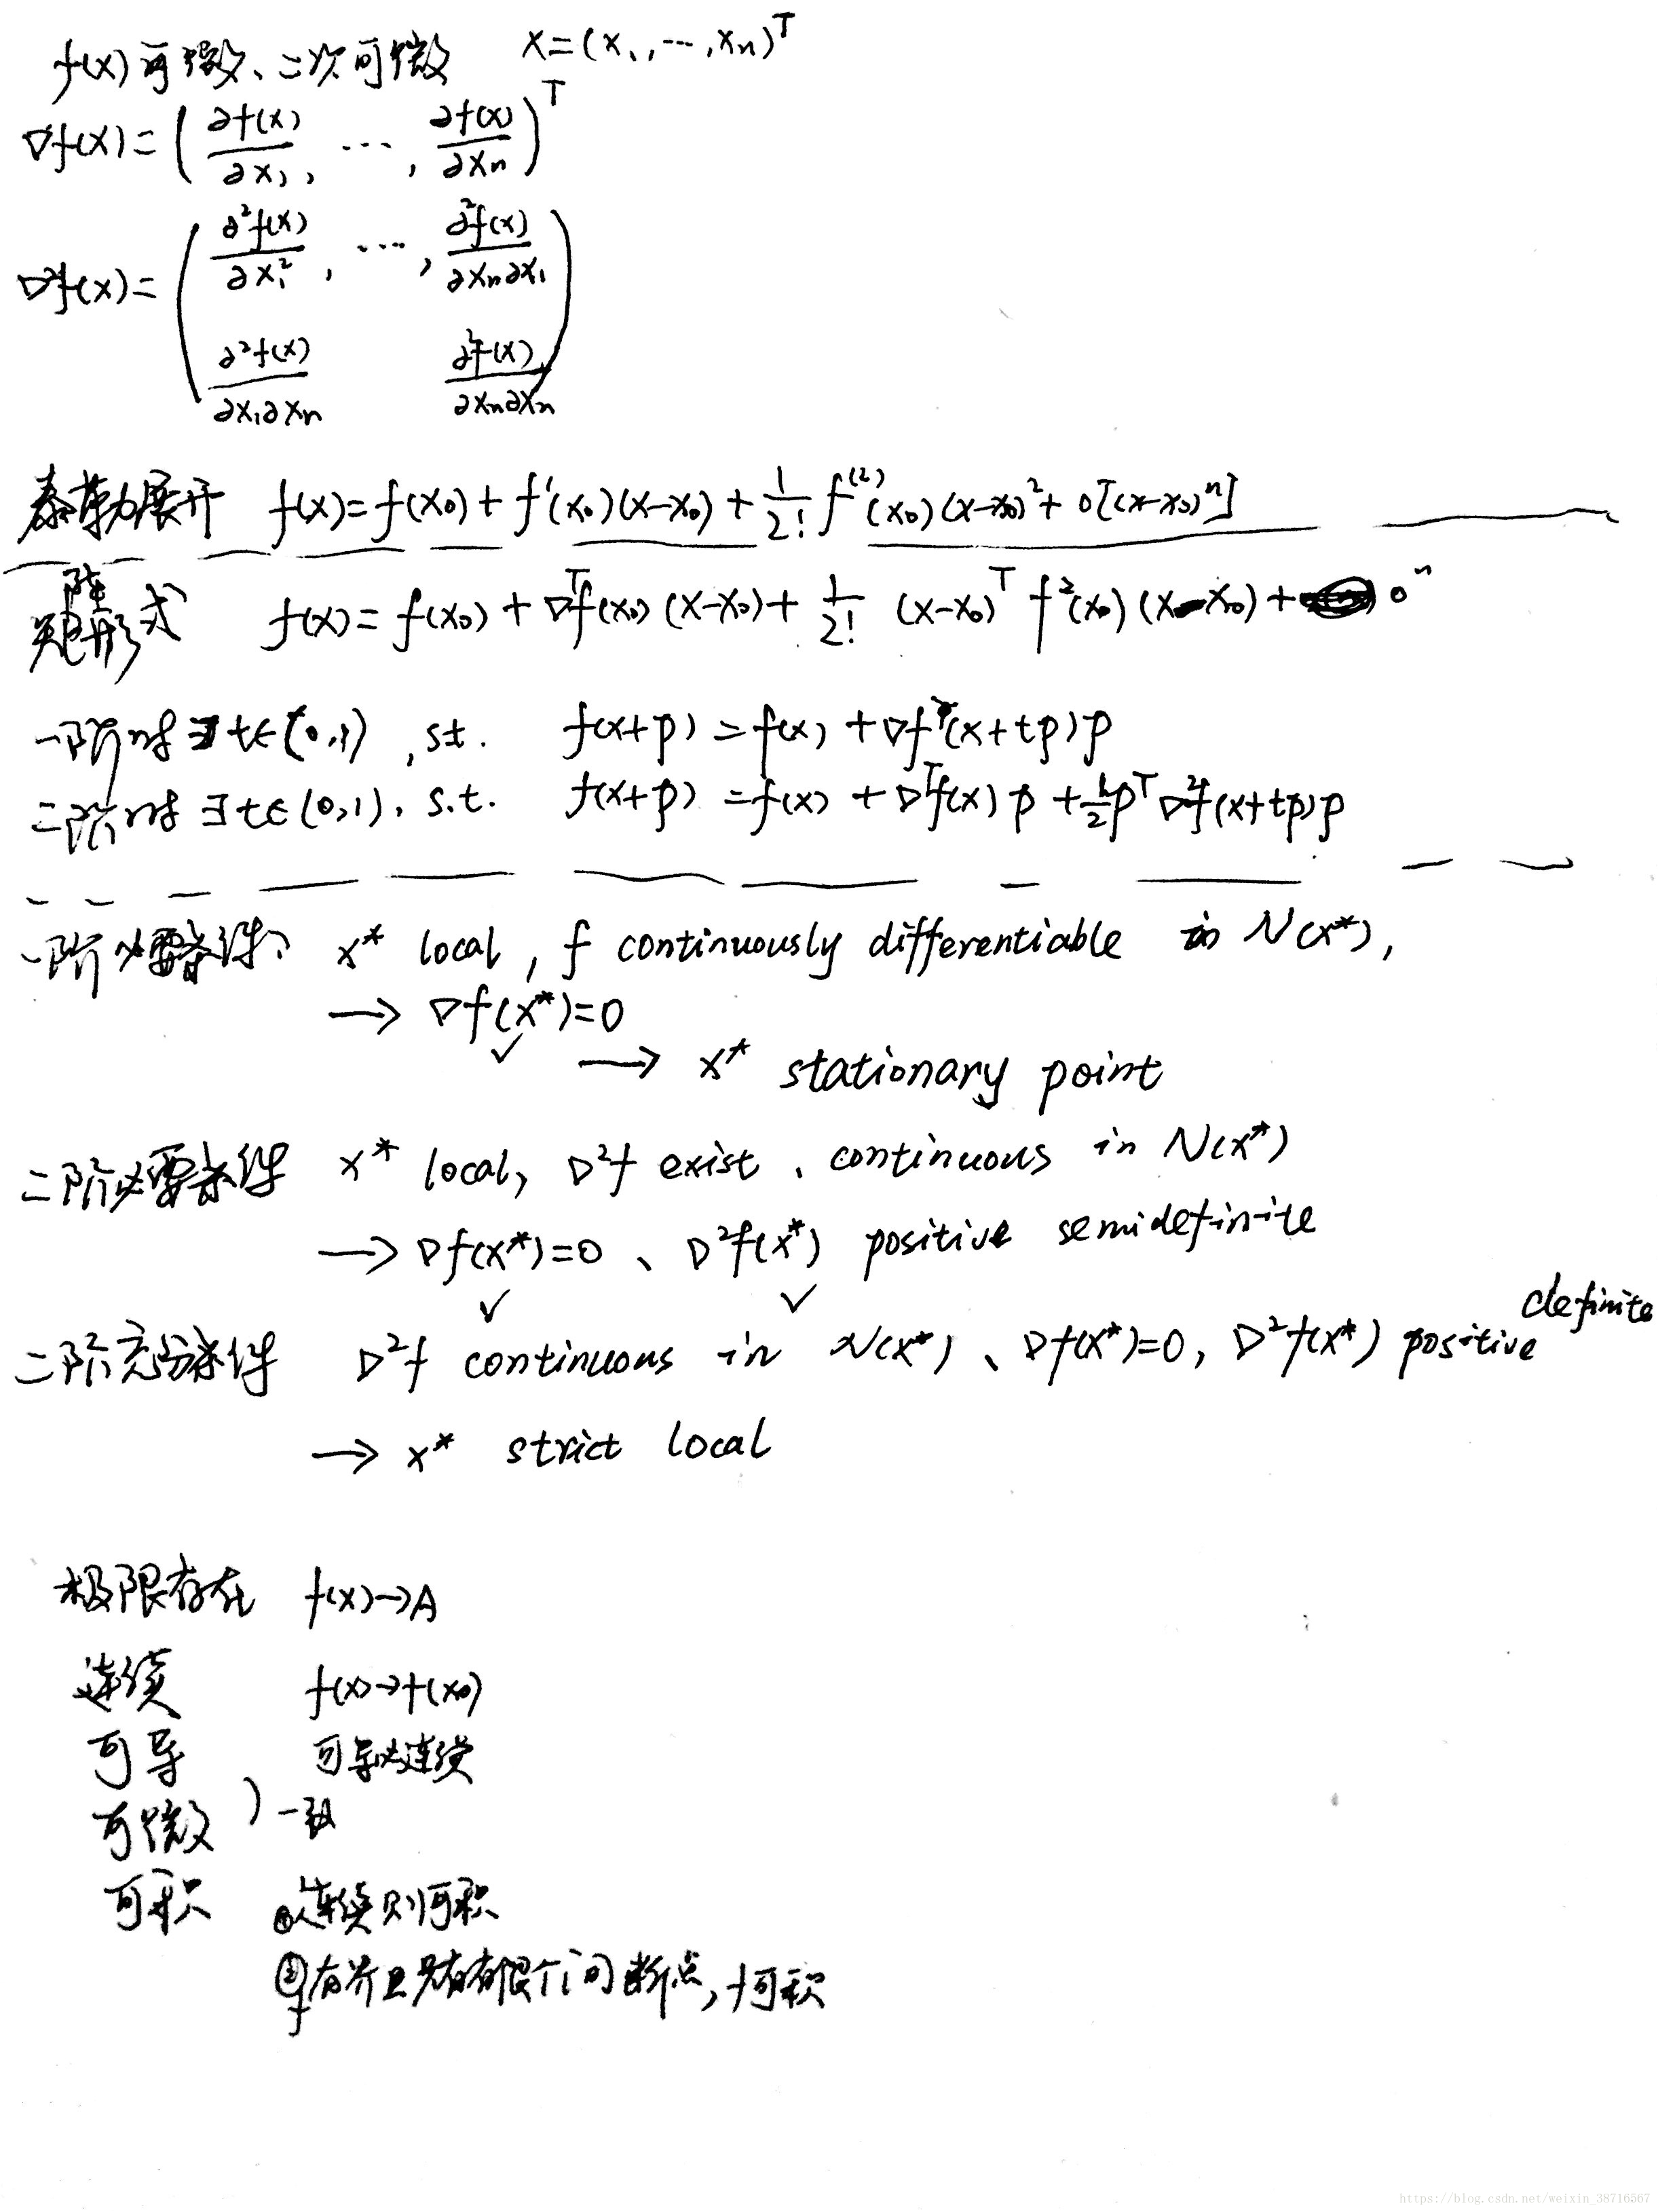 f(x)可微、二次可微 X=(x₁,…,xₙ)ᵀ
∇f(x)=(∂f(x)/∂x₁, …, ∂f(x)/∂xₙ)ᵀ
∇²f(x)=(∂²f(x)/∂x₁², …, ∂²f(x)/∂xₙ∂x₁
∂²f(x)/∂x₁∂xₙ ∂²f(x)/∂xₙ∂xₙ)
泰勒展开 f(x)=f(x₀)+f'(x₀)(x-x₀)+1/2! f⁽²⁾(x₀)(x-x₀)²+o[(x-x₀)ⁿ]
矩阵形式 f(x)=f(x₀)+∇ᵀf(x₀)(x-x₀)+1/2! (x-x₀)ᵀ f²(x₀)(x-x₀)+oⁿ
一阶时∃t∈(0,1),st. f(x+p)=f(x)+∇fᵀ(x+tp)p
二阶时∃t∈(0,1),s.t. f(x+p)=f(x)+∇ᵀf(x)p+1/2pᵀ∇²f(x+tp)p
一阶必要条件: x* local, f continuously differentiable in N(x*),
→ ∇f(x*)=0
✓ → x* stationary point
二阶必要条件 x* local, ∇²f exist、continuous in N(x*)
→ ∇f(x*)=0、∇²f(x*) positive semidefinite
✓ ✓
二阶充分条件 ∇²f continuous in N(x*)、∇f(x*)=0, ∇²f(x*) positive definite
→ x* strict local
极限存在 f(x)→A
连续 f(x)→f(x₀)
可导 可导必连续
可微 )一致
可积 ①连续则可积
②f有界且只有有限个间断点,f可积
https://blog.csdn.net/weixin_38716567